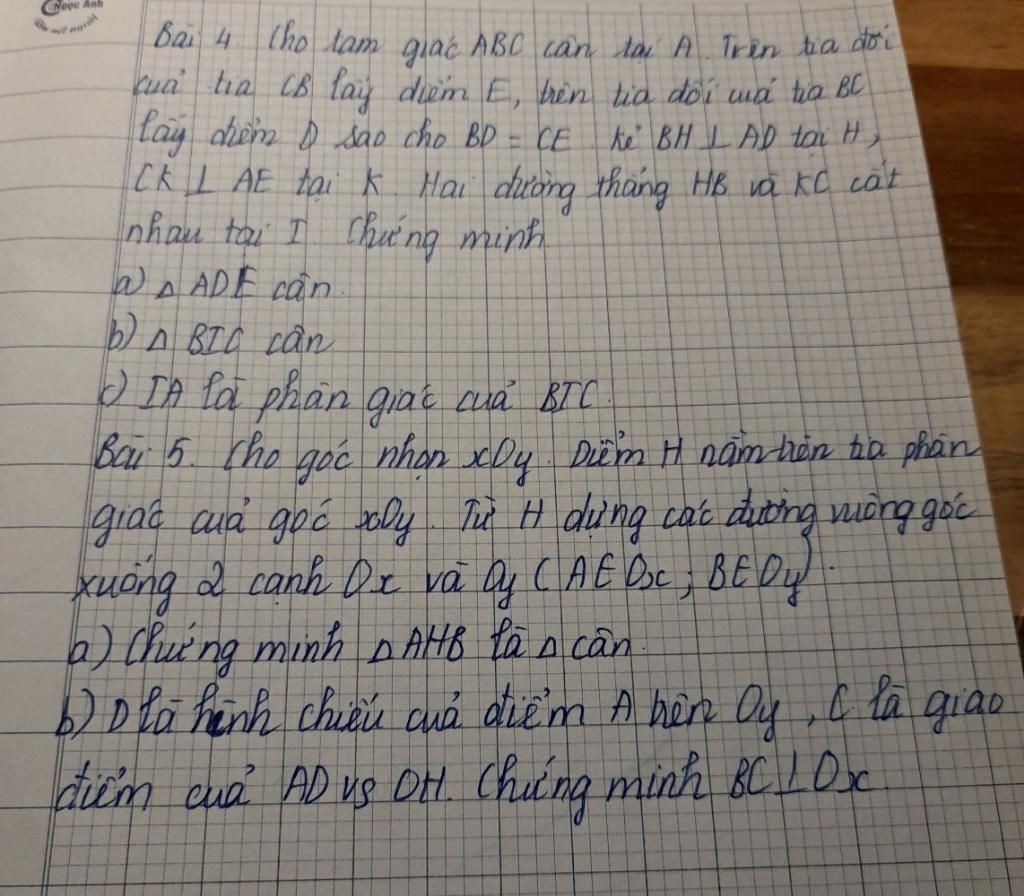 Ngọc Anh
Bài 4. Cho tam giác ABC cân tại A. Trên tia đối
của tia CB lấy điểm E, trên tia đối của tia BC
lấy điểm D sao cho BD = CE. Kẻ BH ⊥ AD tại H,
CK ⊥ AE tại K. Hai đường thẳng HB và KC cắt
nhau tại I. Chứng minh
a) Δ ADE cân.
b) Δ BIC cân
c) IA là phân giác của BIC.
Bài 5. Cho góc nhọn xOy. Điểm H nằm trên tia phân
giác của góc xOy. Từ H dựng các đường vuông góc
xuống 2 cạnh Ox và Oy (A∈Ox; B∈Oy).
a) Chứng minh Δ AHB là Δ cân.
b) D là hình chiếu của điểm A trên Oy, C là giao
điểm của AD vs OH. Chứng minh BC ⊥ Ox.